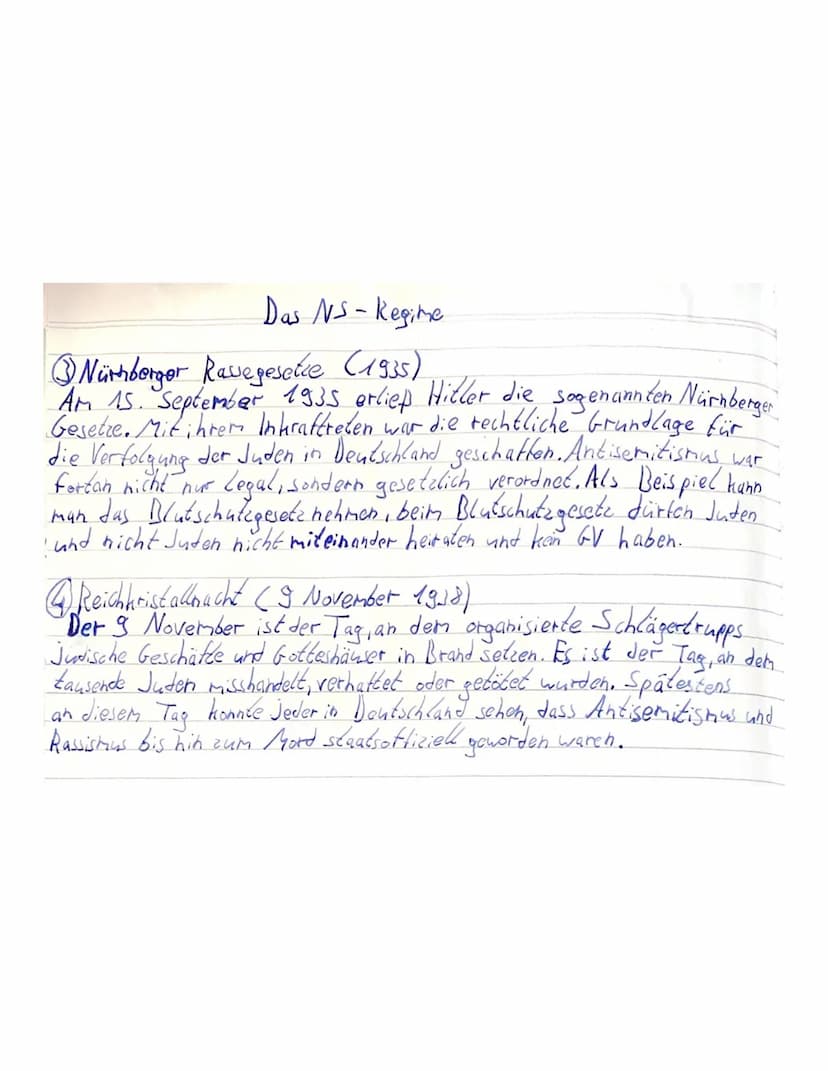 Das NS-Regime
③ Nürnberger Rassegesetze (1935)
Am 15. September 1935 erließ Hitler die sogenannten Nürnberger
Gesetze. Mit ihrem Inkraftreten war die rechtliche Grundlage für
die Verfolgung der Juden in Deutschland geschaffen. Antisemitismus war
fortan nicht nur legal, sondern gesetzlich verordnet. Als Beispiel kann
man das Blutschutzgesetz nehmen, beim Blutschutzgesetz dürfen Juden
und nicht Juden nicht miteinander heiraten und kein GV haben.
④ Reichkristallnacht (9 November 1938)
Der 9 November ist der Tag, an dem organisierte Schlägertrupps
Jüdische Geschäfte und Gotteshäuser in Brand setzen. Es ist der Tag, an dem
tausende Juden misshandelt, verhaftet oder getötet wurden. Spätestens
an diesem Tag konnte jeder in Deutschland sehen, dass Antisemitismus und
Rassismus bis hin zum Mord staatsoffiziell geworden waren.